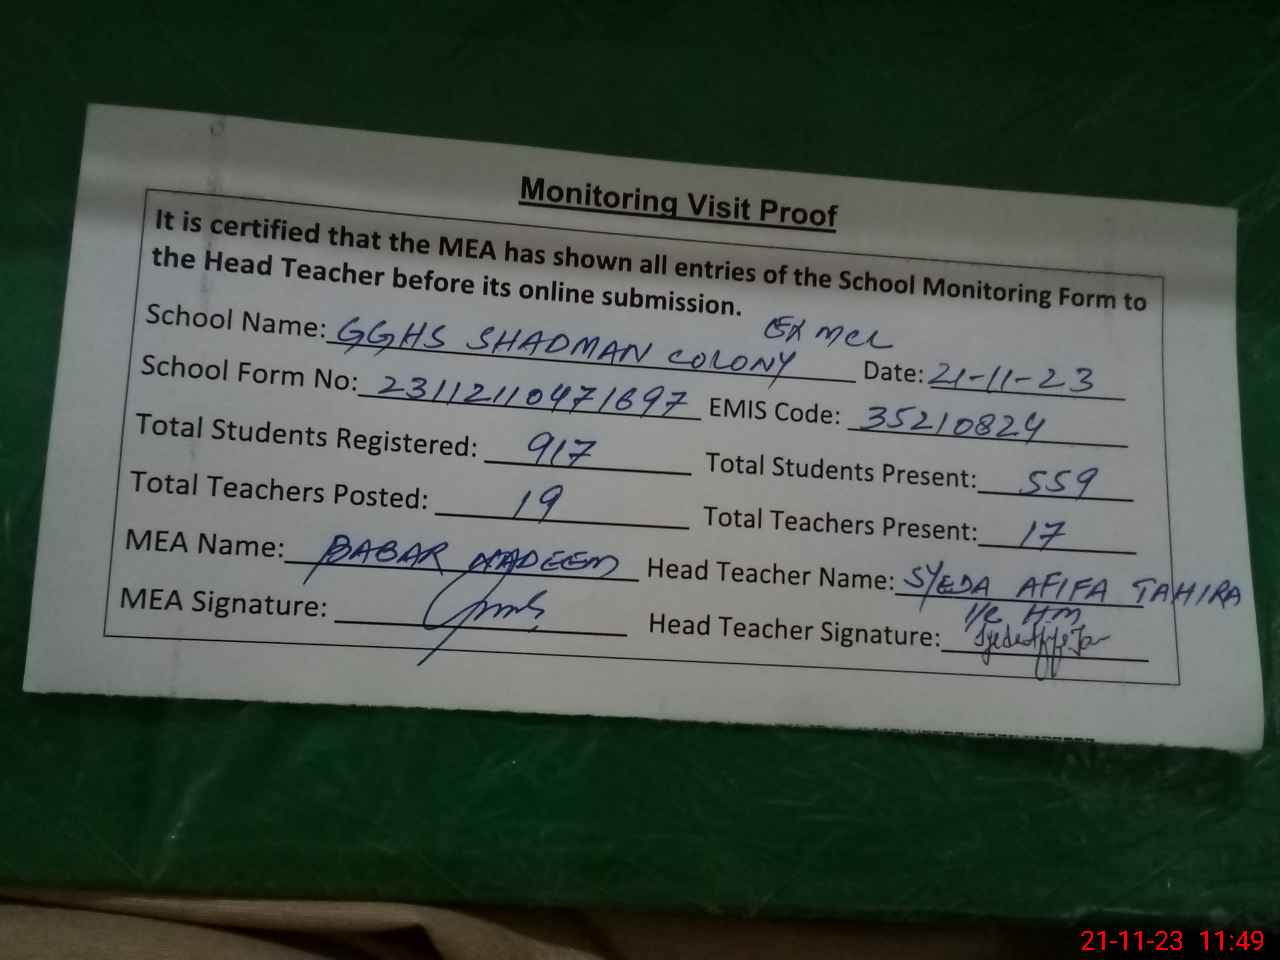 Monitoring Visit Proof
It is certified that the MEA has shown all entries of the School Monitoring Form to
the Head Teacher before its online submission.
School Name: GGHS SHADMAN COLONY EX MCL Date: 21-11-23
School Form No: 23112110471697 EMIS Code: 35210824
Total Students Registered: 917 Total Students Present: 559
Total Teachers Posted: 19 Total Teachers Present: 17
MEA Name: BABAR NADEEM Head Teacher Name: SYEDA AFIFA TAHIRA
I/C HM
MEA Signature: Head Teacher Signature:
21-11-23 11:49